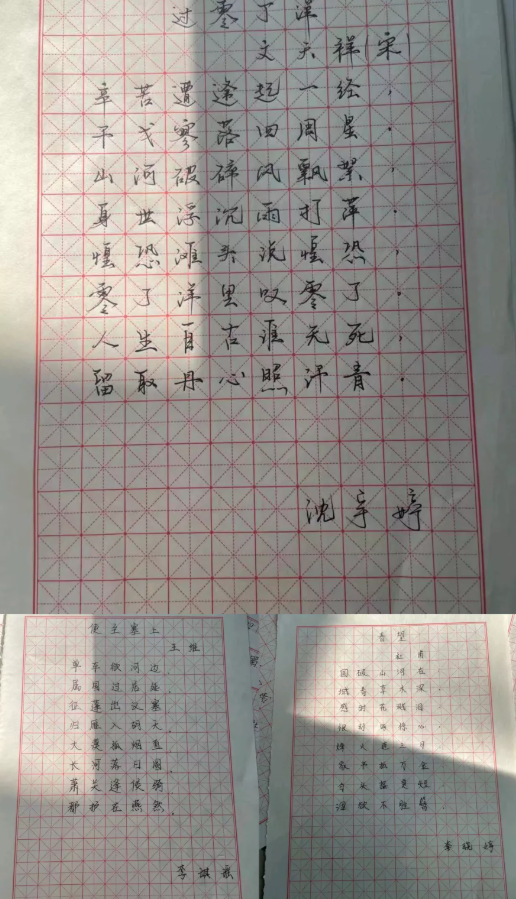 过零丁洋
文天祥(宋)
辛苦遭逢起一经，
干戈寥落四周星。
山河破碎风飘絮，
身世浮沉雨打萍。
惶恐滩头说惶恐，
零丁洋里叹零丁。
人生自古谁无死，
留取丹心照汗青。
沈宇婷
使至塞上
王维
单车欲问边，
属国过居延。
征蓬出汉塞，
归雁入胡天。
大漠孤烟直，
长河落日圆。
萧关逢候骑，
都护在燕然。
李
春望
杜甫
国破山河在
城春草木深
感时花溅泪
恨别鸟惊心
烽火连三月
家书抵万金
白头搔更短
浑欲不胜簪
晓婷